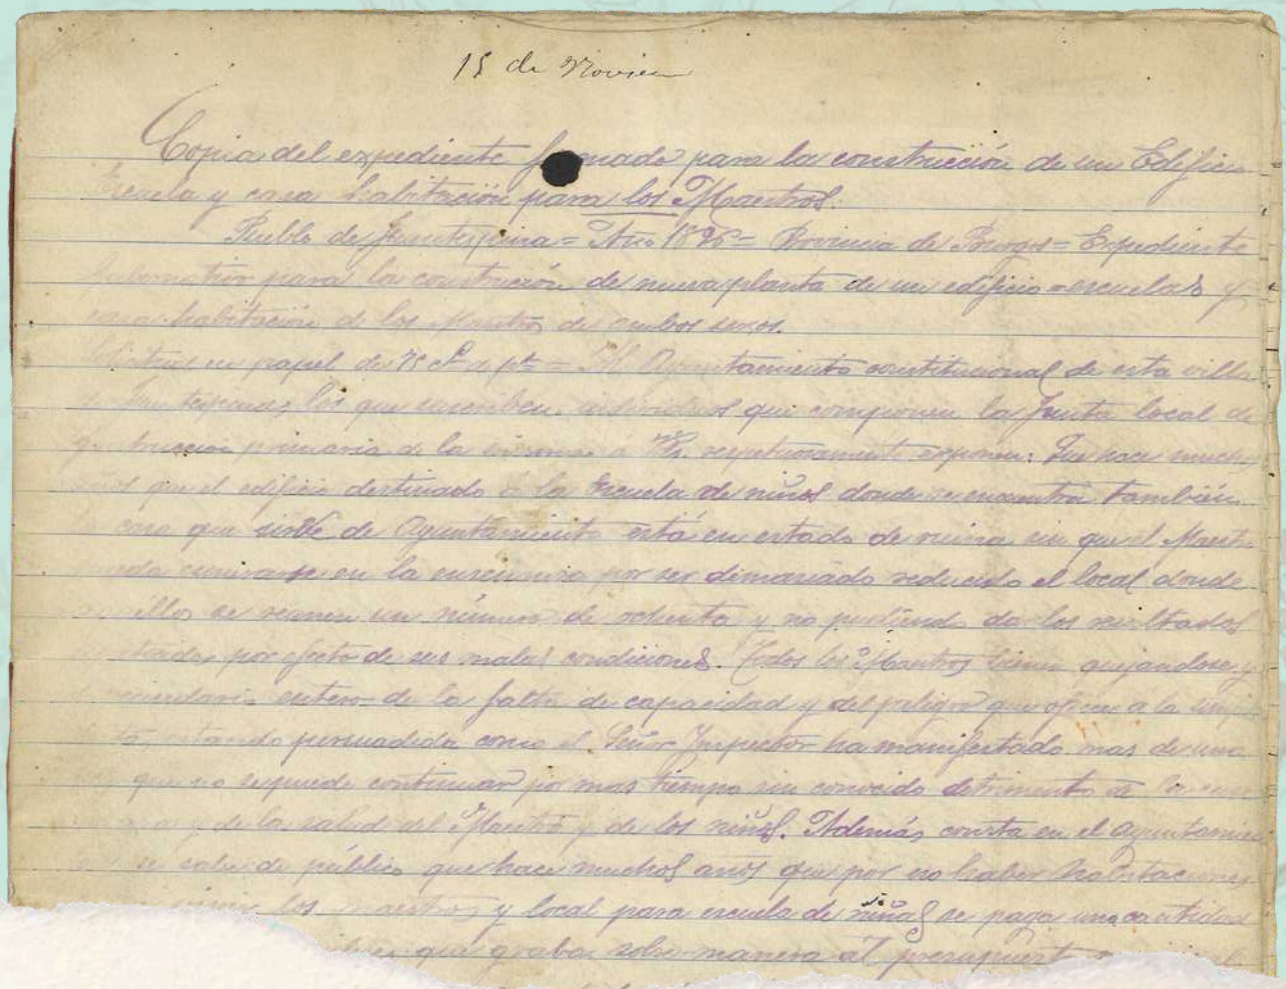 15 de Noviem
Copia del expediente formado para la construcción de un Edificio
Escuela y casa habitación para los Maestros.
Pueblo de Fuentespina = Año 1896 = Provincia de Burgos = Expediente
para la construcción de nueva planta de un edificio-escuelas y
casa-habitación de los Maestros de ambos sexos.
en papel de 75 = Al Ayuntamiento constitucional de esta villa
de Fuentespina, Los que suscriben, individuos que componen la Junta local de
primaria de la misma a respetuosamente exponen: Que hace muchos
años que el edificio destinado a la Escuela de niños donde se encuentra también
la casa que sirve de Ayuntamiento está en estado de ruina sin que el Maestro
pueda en la enseñanza por ser demasiado reducido el local donde
se reunen un número de ochenta y no pudiendo dar los resultados
por efecto de sus malas condiciones. Todos los Maestros vienen quejandose y
entero de la falta de capacidad y del peligro que ofrece a la
estando persuadida como el Señor Inspector ha manifestado mas de una
que no se puede continuar por mas tiempo sin conocido detrimento de
y de la salud del Maestro y de los niños. Además consta en el Ayuntamien
se sabe de público que hace muchos años que por no haber habitaciones
los maestros y local para escuela de niñas se paga una cantidad
que graba sobre manera al presupuesto